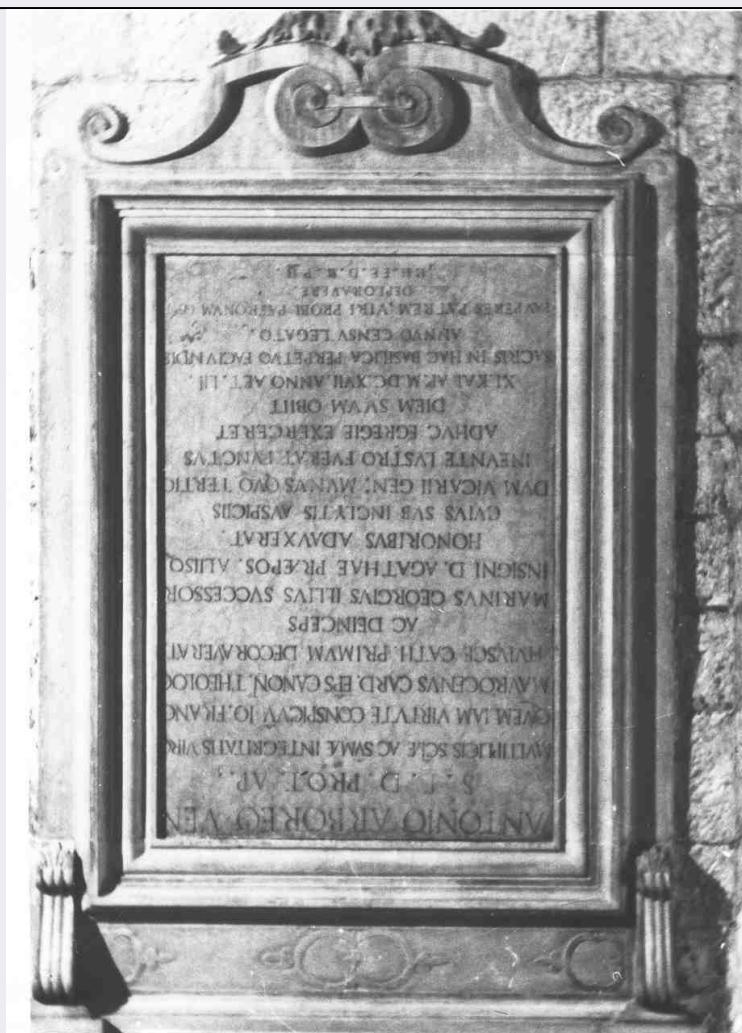 ANTONIO ARBOREO VEN
S. T. D. PROT. AP.
MVLTIPLICIS SCIÆ AC SVMÆ INTEGRITATIS VIRO
QVEM IAM VIRTVTE CONSPICVV IO. FRANC
MAVROCENVS CARD. EPS CANON. THEOLOG
HVIVSCE CATH. PRIMVM DECORAVERAT
AC DEINCEPS
MARINVS GEORGIVS ILLIVS SVCCESSOR
INSIGNI D. AGATHAE PRÆPOS. ALIISQ
HONORIBVS ADAVXERAT.
CVIVS SVB INCLYTIS AVSPICIIS
DVM VICARII GEN. MVNVS QVO TERTIO
INEVNTE LVSTRO FVERAT FVNCTVS
ADHVC EGREGIE EXERCERET
DIEM SVVM OBIIT
XI. KAL AP. M.DC.XVII. ANNO AET. LII.
SACRIS IN HAC BASILICA PERPETVO FACIVNDIS
ANNVO CENSV LEGATO.
PAVPERES PATREM, VIRI PROBI PATRONVM
DEPLORAVERE